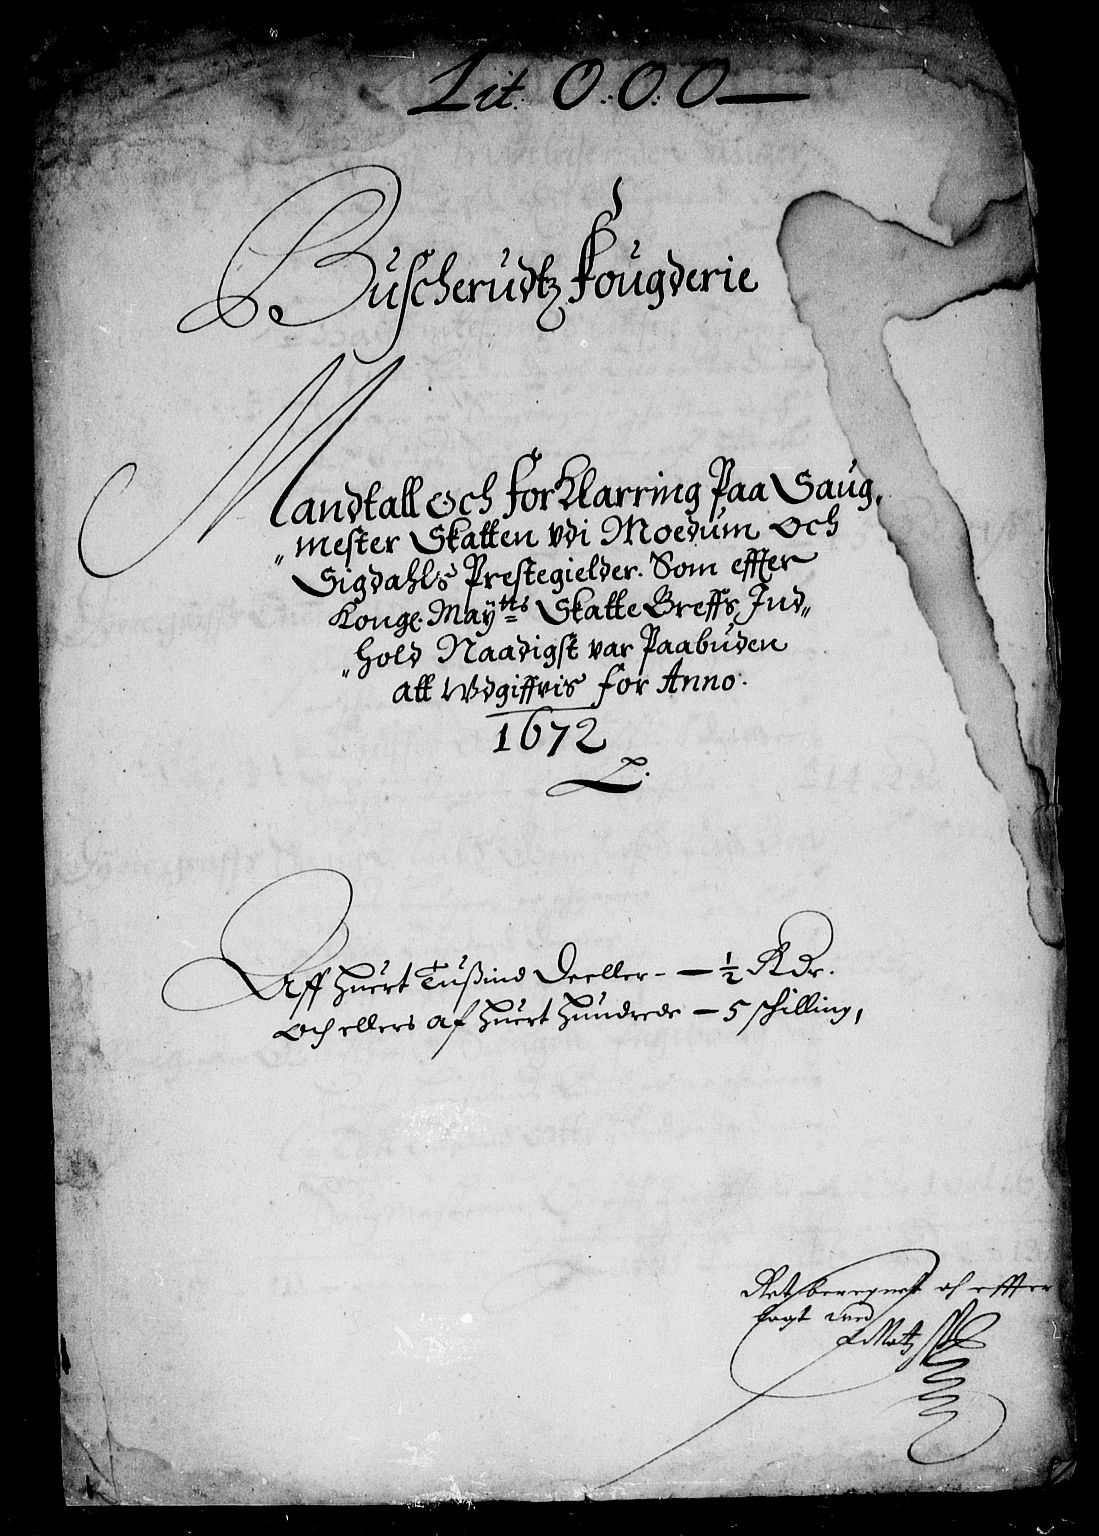 Lit. O:O:O
Buscherudtz Fougderie
Mandtall Och Forklarring Paa Saug,
„mester Skatten vdi Moedum Och
Sigdahls Prestegielder. Som effter
Konge. Maytts Skatte Breffs Ind„
„hold Naadigst var Paabuden
att Wdgiffvis for Anno.
1672
Aff huert Tußind Deeller - — 1/2 Rdr.
Och ellers af huert Hundrede — 5 schilling,
Ret beregnet och effter
lagt